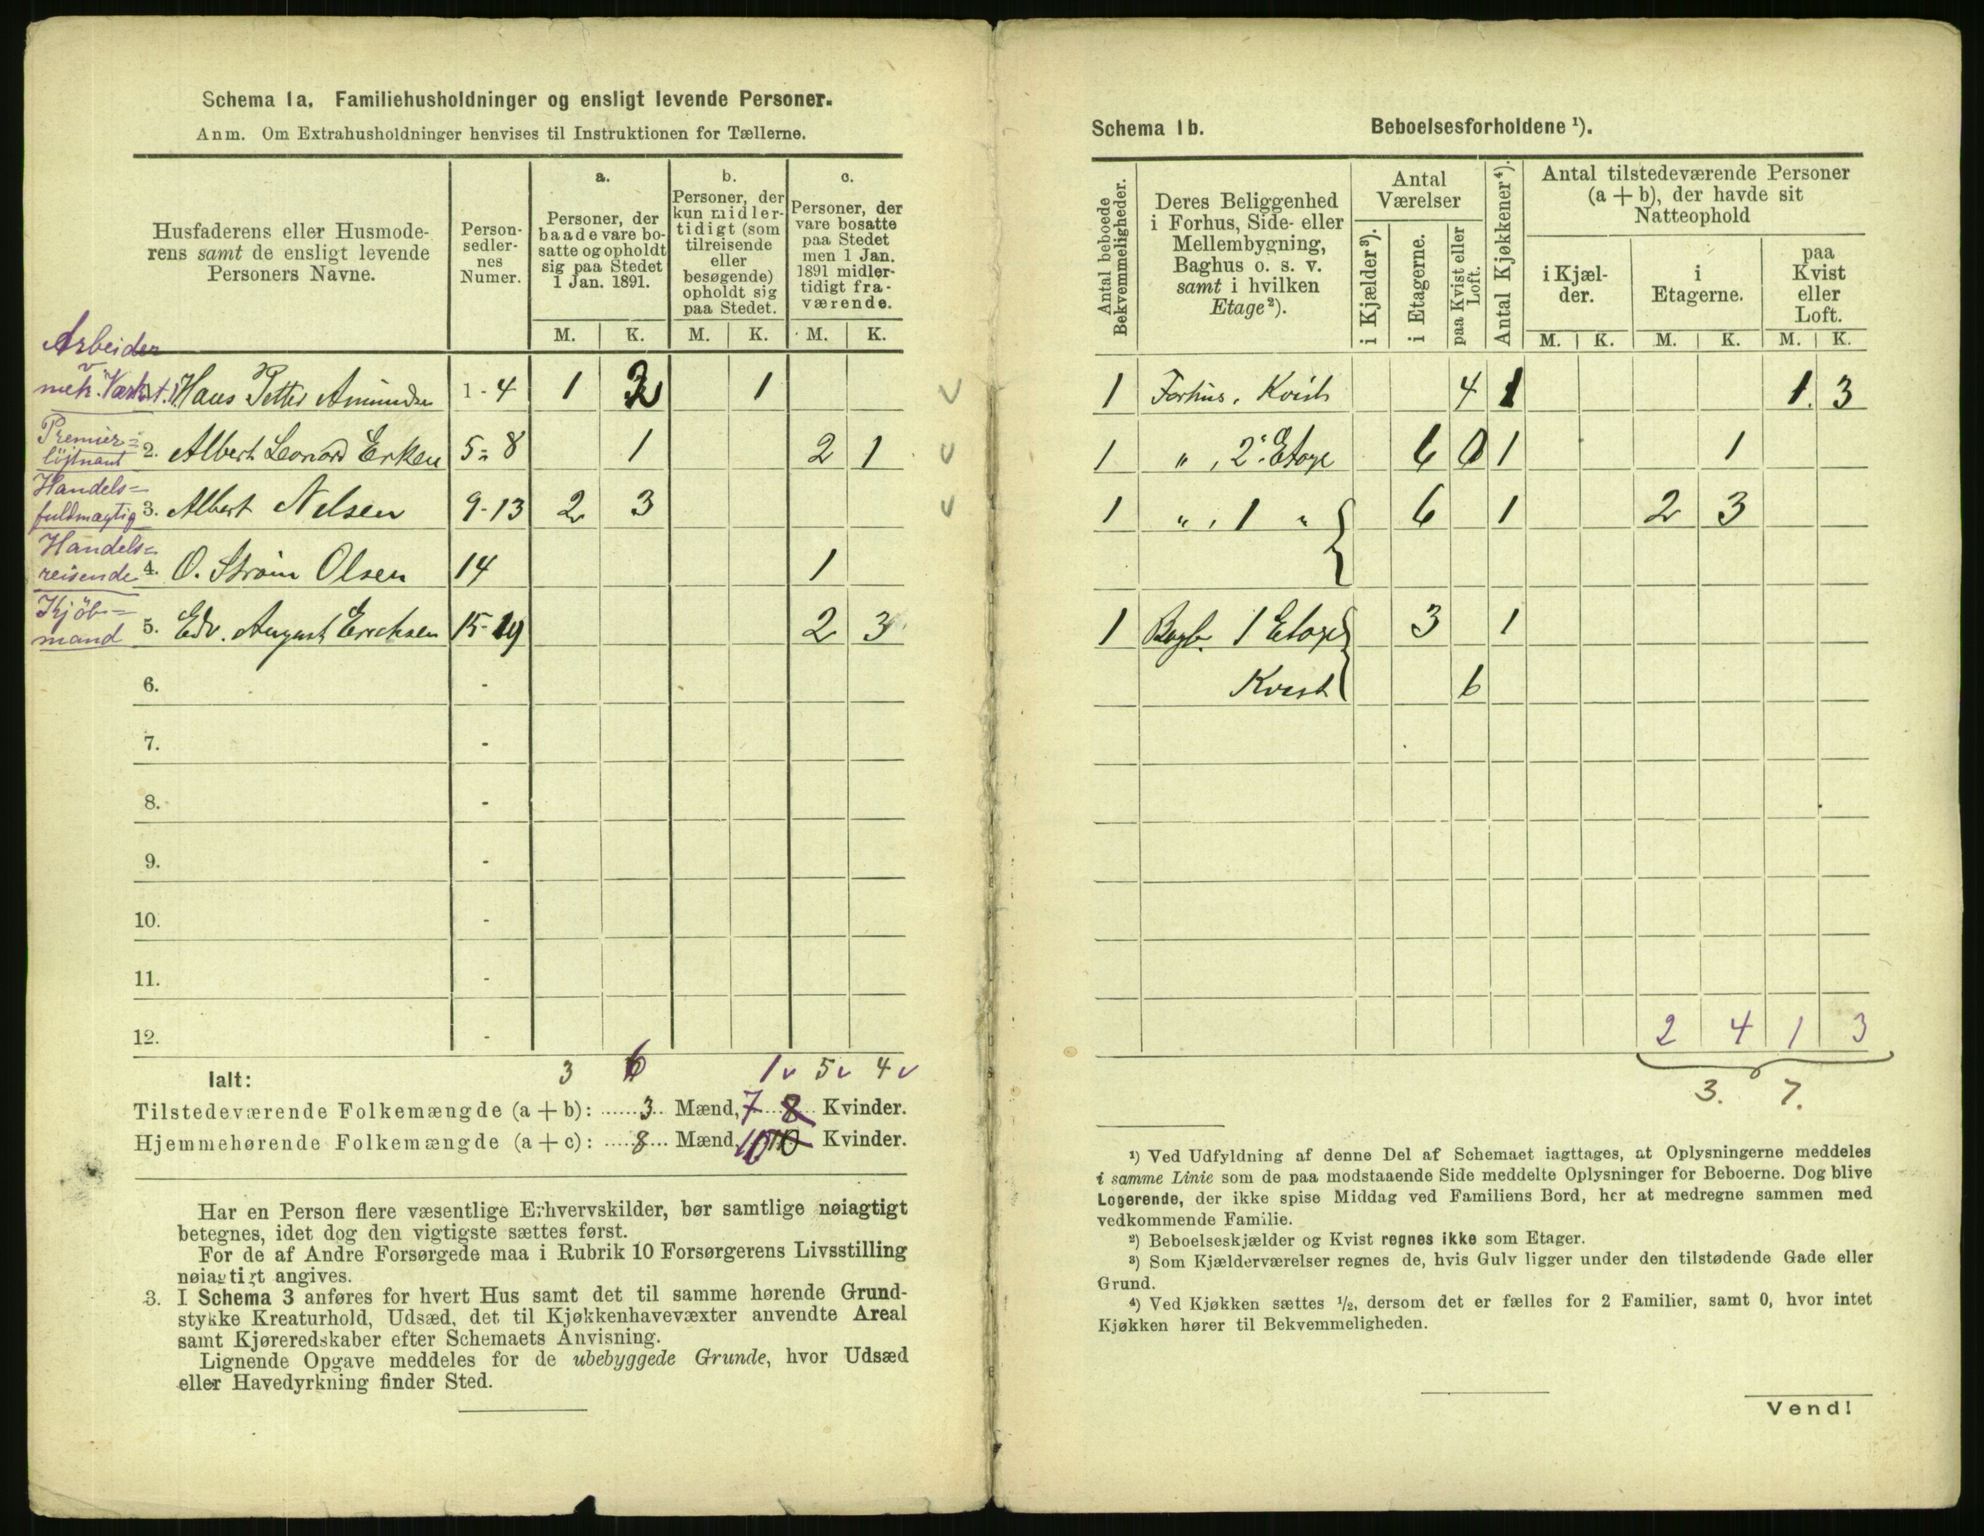 Schema 1a. Familiehusholdninger og ensligt levende Personer.
Anm. Om Extrahusholdninger henvises til Instruktionen for Tællerne.
Husfaderens eller Husmode-
rens samt de ensligt levende
Personers Navne.
Person-
sedler-
nes
Numer.
a.
Personer, der
baade vare bo-
satte og opholdt
sig paa Stedet
1 Jan. 1891.
b.
Personer, der
kun midler-
tidigt (som
tilreisende
eller
besøgende)
opholdt sig
paa Stedet.
c.
Personer, der
vare bosatte
paa Stedet
men 1 Jan.
1891 midler-
tidigt fra-
værende.
M. K. M. K. M. K.
Arbeider
v
mek. Værkst. 1. Hans Petter Amundsen 1-4 1 1
Premier=
løjtnant 2. Albert Leonard Erken 5-8 1 2 1
Handels=
fuldmægtig 3. Albert Nelsen 9-13 2 3
Handels=
reisende 4. O. Strøm Olsen 14 1
Kjöb=
mand 5. Edv. August Erichsen 15-19 2 3
6. -
7. -
8. -
9. -
10. -
11. -
12. -
Ialt: 3 6 1 v 5 v 4 v
Tilstedeværende Folkemængde (a + b): 3 Mænd, 7 8 Kvinder.
Hjemmehørende Folkemængde (a + c): 8 Mænd, 10 10 Kvinder.
Har en Person flere væsentlige Erhvervskilder, bør samtlige nøiagtigt
betegnes, idet dog den vigtigste sættes først.
For de af Andre Forsørgede maa i Rubrik 10 Forsørgerens Livsstilling
nøiagtigt angives.
3. I Schema 3 anføres for hvert Hus samt det til samme hørende Grund-
stykke Kreaturhold, Udsæd, det til Kjøkkenhavevæxter anvendte Areal
samt Kjøreredskaber efter Schemaets Anvisning.
Lignende Opgave meddeles for de ubebyggede Grunde, hvor Udsæd
eller Havedyrkning finder Sted.
Schema 1b. Beboelsesforholdene ¹).
Antal beboede
Bekvemmeligheder.
Deres Beliggenhed
i Forhus, Side- eller
Mellembygning,
Baghus o. s. v.
samt i hvilken
Etage²).
Antal
Værelser
i Kjælder³).
i Etagerne.
paa Kvist eller
Loft.
Antal Kjøkkener⁴).
Antal tilstedeværende Personer
(a + b), der havde sit
Natteophold
i Kjæl-
der.
i
Etagerne.
paa
Kvist
eller
Loft.
M. K. M. K. M. K.
1 Forhus. Kvist 4 1 1 3
1 " , 2. Etage 6 0 1 1
1 " , 1 " 6 1 2 3
1 Bagb. 1 Etage 3 1
Kvist 6
2 4 1 3
3. 7.
¹) Ved Udfyldning af denne Del af Schemaet iagttages, at Oplysningerne meddeles
i samme Linie som de paa modstaaende Side meddelte Oplysninger for Beboerne. Dog blive
Logerende, der ikke spise Middag ved Familiens Bord, her at medregne sammen med
vedkommende Familie.
²) Beboelseskjælder og Kvist regnes ikke som Etager.
³) Som Kjælderværelser regnes de, hvis Gulv ligger under den tilstødende Gade eller
Grund.
⁴) Ved Kjøkken sættes ½, dersom det er fælles for 2 Familier, samt 0, hvor intet
Kjøkken hører til Bekvemmeligheden.
Vend!